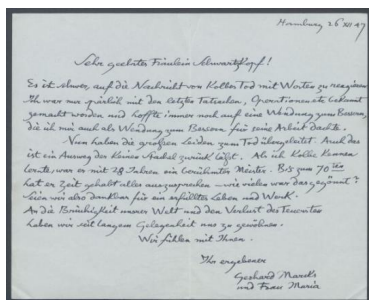 Hamburg 26 XII 47
Sehr geehrtes Fräulein Schwartzkopf!
Es ist schwer, auf die Nachricht von Kolles Tod mit Worten zu reagieren
Ich war nur spärlich mit den letzten Tatsachen, Operationen etc bekannt
gemacht worden und hoffte immer noch auf eine Wendung zum Bessern,
die ich mir auch als Wendung zum Bessern für seine Arbeit dachte.
Nun haben die großen Leiden zum Tod übergeleitet. Auch das
ist ein Ausweg der keinen Stachel zurück läßt. Als ich Kolle kennen
lernte, war er mit 28 Jahren ein berühmter Meister. Bis zum 70ten
hat er Zeit gehabt alles auszusprechen – wie vielen war das gegönnt?
Seien wir also dankbar für ein erfülltes Leben und Werk.
An die Brüchigkeit unserer Welt und den Verlust des
haben wir seit langem Gelegenheit uns zu gewöhnen.
Wir fühlen mit Ihnen.
Ihr ergebener
Gerhard Marcks
und Frau Maria